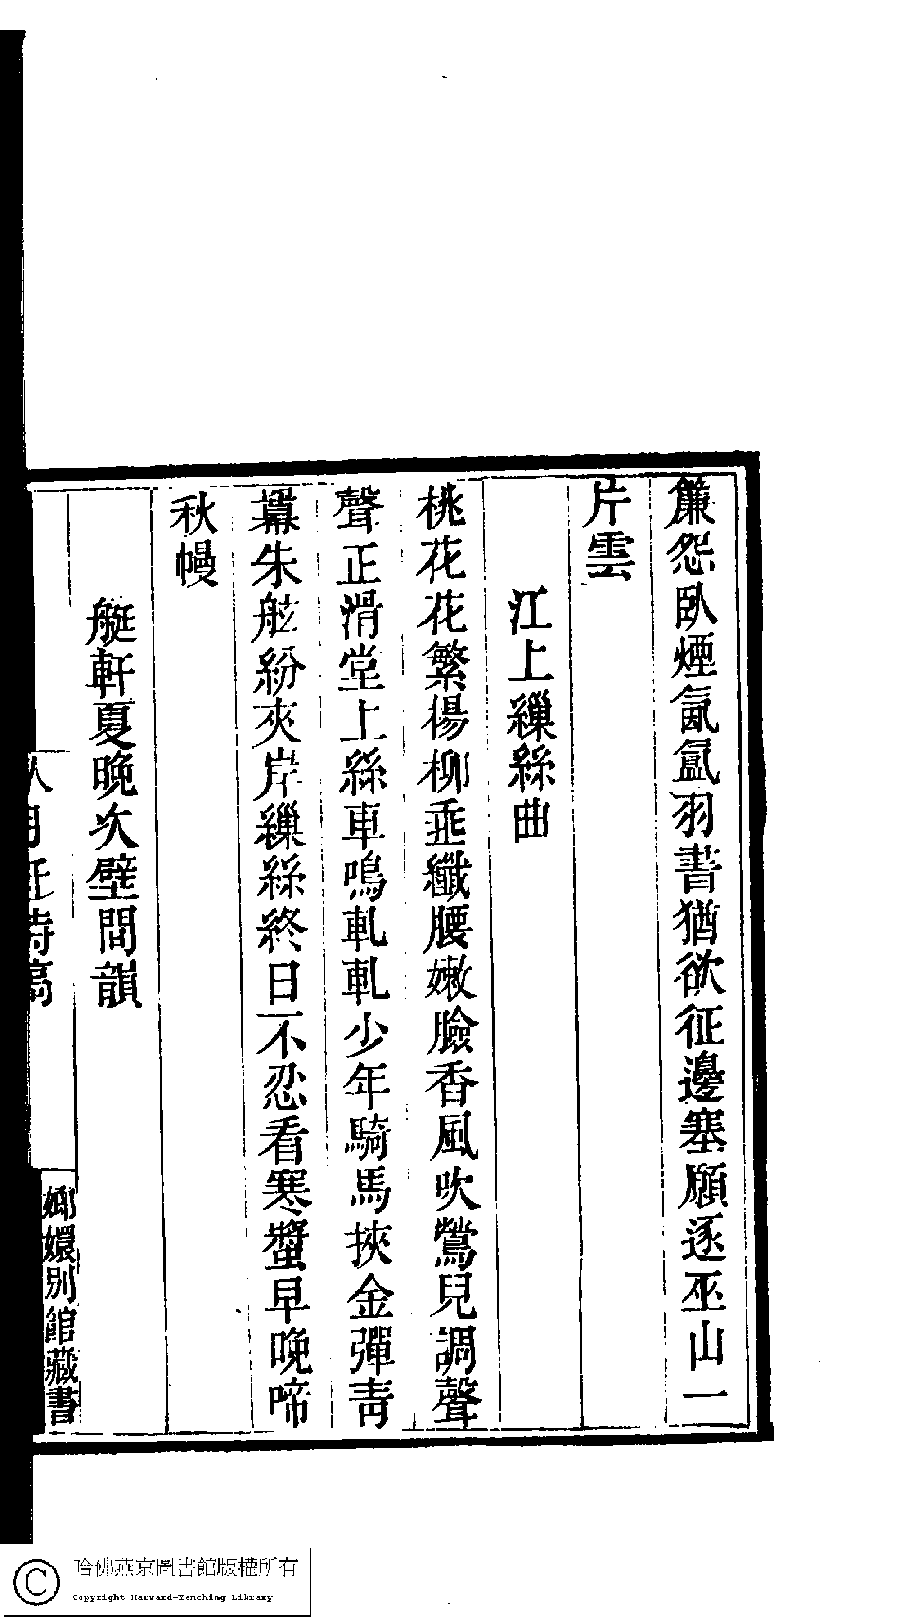 簾怨臥煙氤氳羽書猶欲征邊塞願逐巫山一
片雲
江上繅絲曲
桃花花繁楊柳垂纖腰嫩臉香風吹鶯兒調聲
聲正滑堂上絲車鳴軋軋少年騎馬挾金彈靑
幕朱舷紛夾岸繅絲終日不忍看寒螿早晚啼
秋幔
艇軒夏晚次壁間韻
詩稿
嫏嬛別館藏書
哈佛燕京圖書館版權所有
Copyright Harvard-Yenching Library